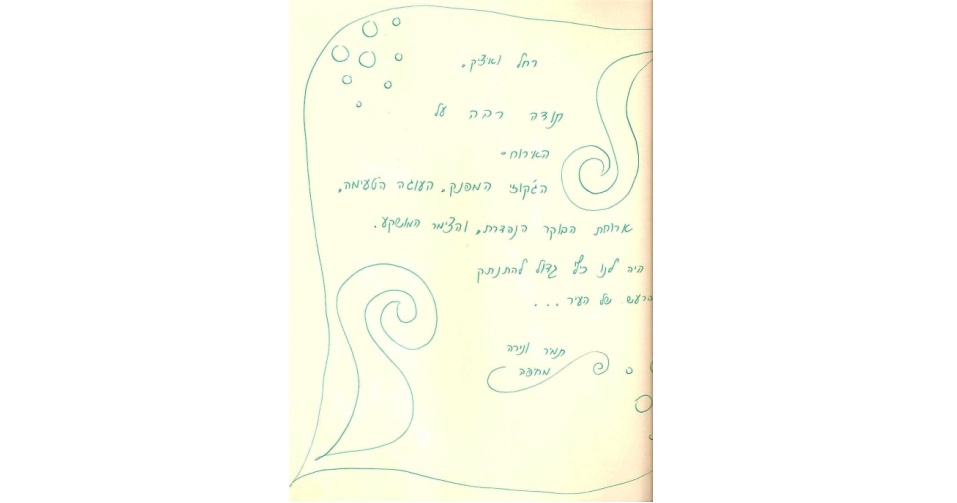 רחל ואיציק,
תודה רבה על
האירוח-
הג'קוזי המפנק, העוגה הטעימה,
ארוחת הבוקר הנהדרת, והצימר המושקע.
היה לנו כיף גדול להתנתק
מרעש של העיר...
תמר ונירה
מחיפה